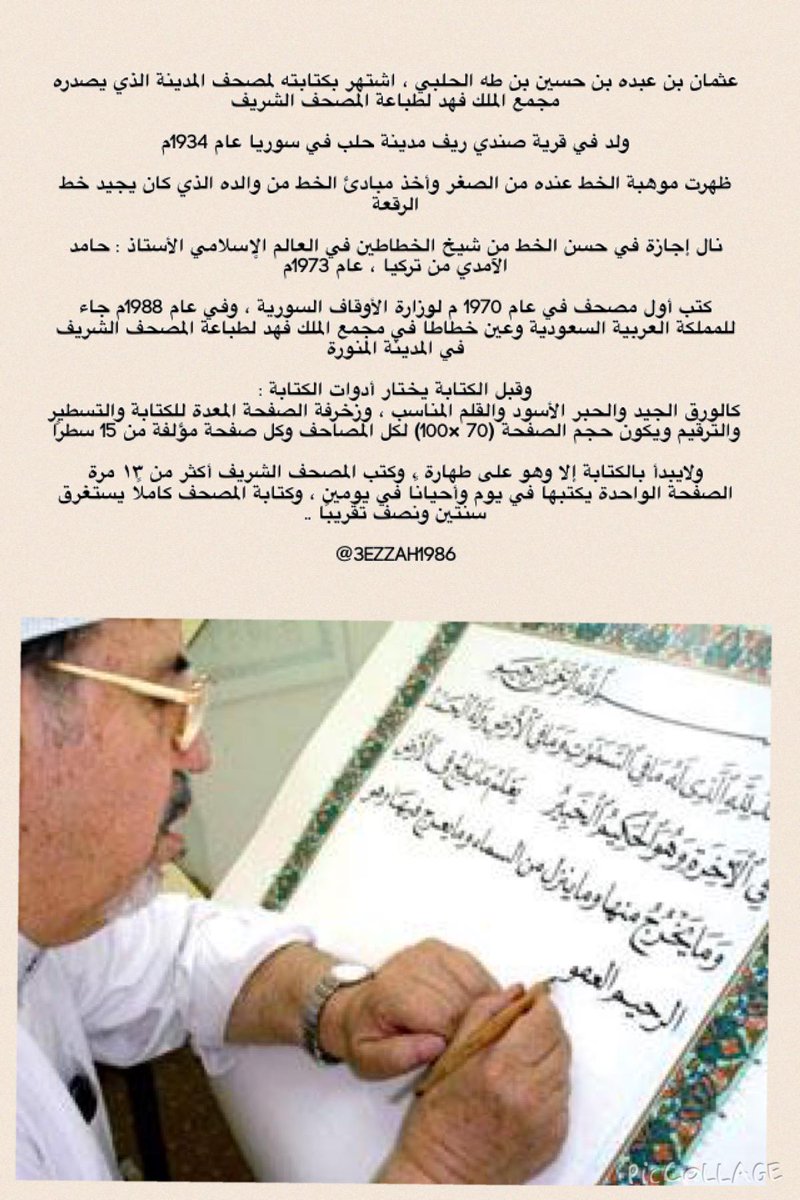 عثمان بن عبده بن حسين بن طه الحلبي ، اشتهر بكتابته لمصحف المدينة الذي يصدره
مجمع الملك فهد لطباعة المصحف الشريف
ولد في قرية صندي ريف مدينة حلب في سوريا عام 1934م
ظهرت موهبة الخط عنده من الصغر وأخذ مبادئ الخط من والده الذي كان يجيد خط
الرقعة
نال إجازة في حسن الخط من شيخ الخطاطين في العالم الإسلامي الأستاذ : حامد
الآمدي من تركيا ، عام 1973م
كتب أول مصحف في عام 1970 م لوزارة الأوقاف السورية ، وفي عام 1988م جاء
للمملكة العربية السعودية وعين خطاطاً في مجمع الملك فهد لطباعة المصحف الشريف
في المدينة المنورة
وقبل الكتابة يختار أدوات الكتابة :
كالورق الجيد والحبر الأسود والقلم المناسب ، وزخرفة الصفحة المعدة للكتابة والتسطير
والترقيم ويكون حجم الصفحة (70 ×100) لكل المصاحف وكل صفحة مؤلفة من 15 سطرًا
ولايبدأ بالكتابة إلا وهو على طهارة ، وكتب المصحف الشريف أكثر من ١٣ مرة
الصفحة الواحدة يكتبها في يوم وأحيانا في يومين ، وكتابة المصحف كاملًا يستغرق
سنتين ونصف تقريباً ..
@3EZZAH1986
ٱللَّهِ ٱلرَّحْمَٰنِ ٱلرَّحِيمِ
لِلَّهِ ٱلَّذِى لَهُۥ مَا فِى ٱلسَّمَٰوَٰتِ وَمَا فِى ٱلْأَرْضِ وَلَهُ ٱلْحَمْدُ
فِى ٱلْأٓخِرَةِ وَهُوَ ٱلْحَكِيمُ ٱلْخَبِيرُ يَعْلَمُ مَا يَلِجُ فِى ٱلْأَرْضِ
وَمَا يَخْرُجُ منها وما ينزل من السماء وما يعرج فيها وهو
الرحيم الغفو
PIC COLLAGE